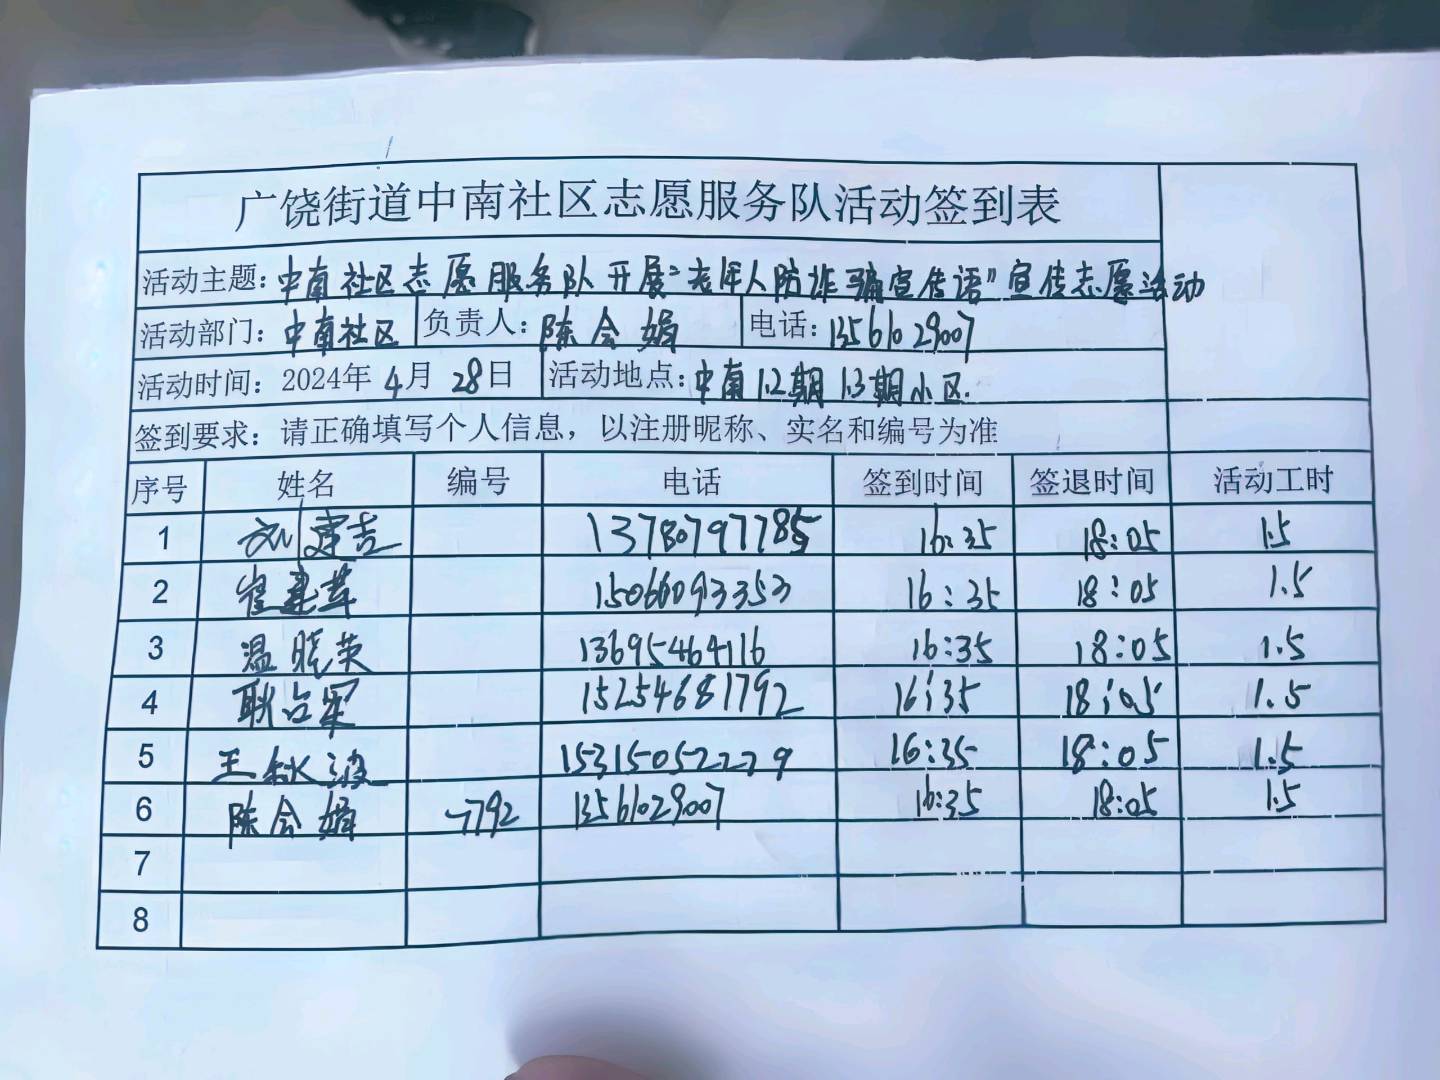 广饶街道中南社区志愿服务队活动签到表
活动主题：中南社区志愿服务队开展“老年人防诈骗宣传语”宣传志愿活动
活动部门：中南社区 负责人：陈会娟 电话：13561029007
活动时间：2024年4月28日 活动地点：中南1.2期1.3期小区.
签到要求：请正确填写个人信息，以注册昵称、实名和编号为准
序号 姓名 编号 电话 签到时间 签退时间 活动工时
1 刘建吉 13780797785 16:35 18:05 1.5
2 崔建英 15066093353 16:35 18:05 1.5
3 温晓英 13695464116 16:35 18:05 1.5
4 耿 15254681792 16:35 18:05 1.5
5 王秋波 15315052229 16:35 18:05 1.5
6 陈会娟 7792 13561029007 16:35 18:05 1.5
7
8